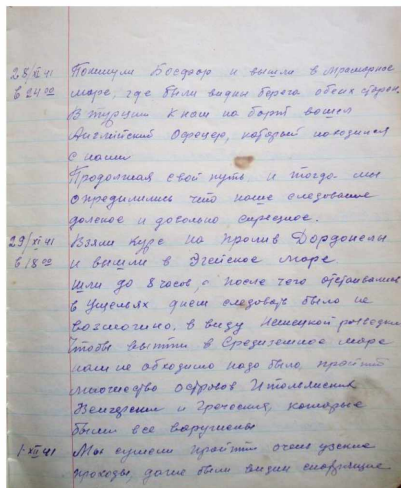 28/XI 41 Покинули Босфор и вышли в мраморное
в 24 00 море, где были видны берега обеих сторон.
В турции к нам на борт вошел
Английский Офецер, который находился
с нами
Продолжая свой путь, и тогда мы
определились что наше следование
долгое и довольно серьезное.
29/XI 41 Взяли курс на пролив Дорданелы
в 18 00 и вышли в Эгейское море
шли до 8 часов, после чего отстаивались
в Ущельях днем следовать было не
возможно, в виду Немецкой разведки
Чтобы вытти в Средиземное море
нам не обходимо надо было, пройти
множество островов Итальянских
Венгерских и Греческих, которые
были все вооружены
1-XII 41 Мы сумели пройти очень узкие
проходы, даже были видны